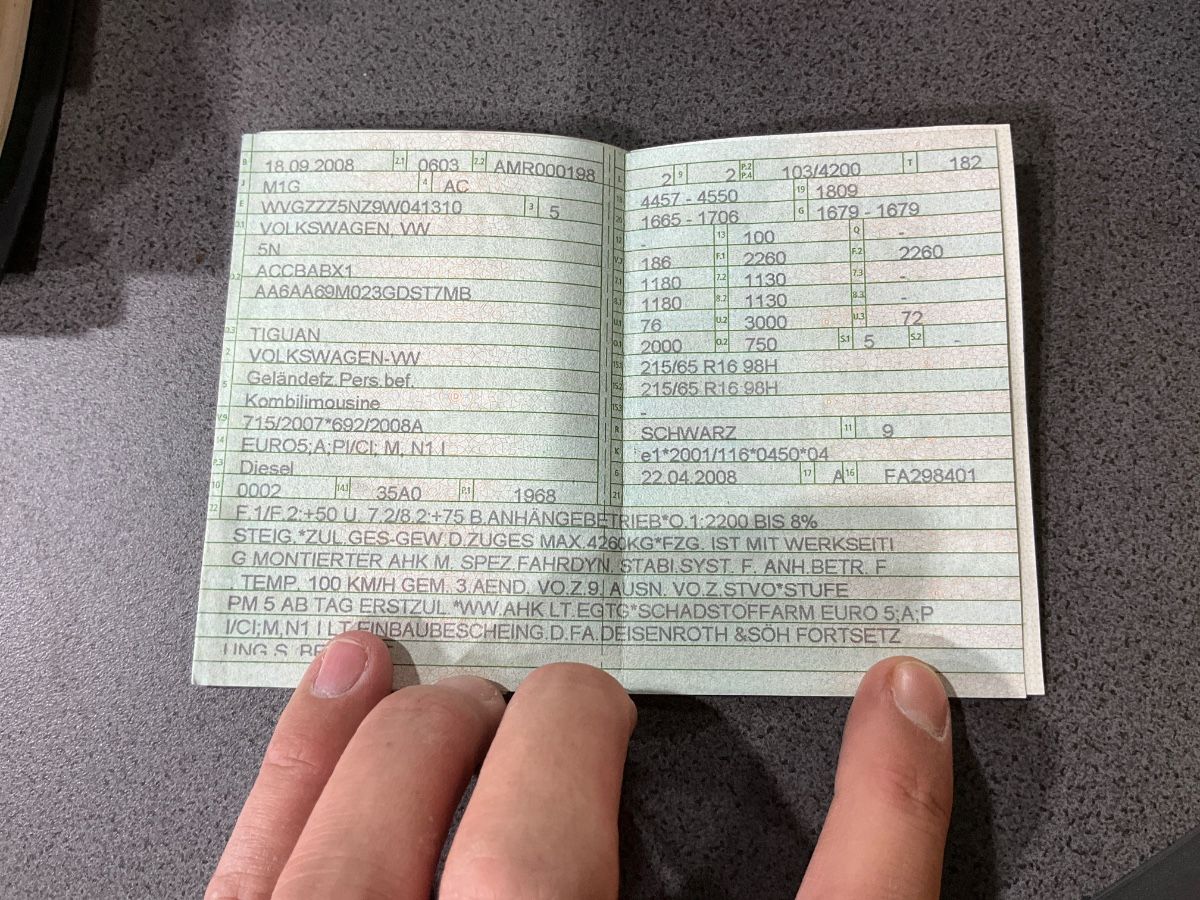 B 18.09.2008 2.1 0603 2.2 AMR000198
J M1G 4 AC
E WVGZZZ5NZ9W041310 3 5
D.1 VOLKSWAGEN, VW
5N
D.2 ACCBABX1
AA6AA69M023GDST7MB
D.3 TIGUAN
2 VOLKSWAGEN-VW
5 Geländefz.Pers.bef.
Kombilimousine
V.9 715/2007*692/2008A
14 EURO5;A;PI/CI; M, N1 I
P.3 Diesel
10 0002 14.1 35A0 P.1 1968
L 2 9 2 P.2 P.4 103/4200 T 182
18 4457 - 4550 19 1809
20 1665 - 1706 G 1679 - 1679
12 - 13 100 Q -
V.7 186 F.1 2260 F.2 2260
7.1 1180 7.2 1130 7.3 -
8.1 1180 8.2 1130 8.3 -
U.1 76 U.2 3000 U.3 72
O.1 2000 O.2 750 S.1 5 S.2 -
15.1 215/65 R16 98H
15.2 215/65 R16 98H
15.3 -
R SCHWARZ 11 9
K e1*2001/116*0450*04
6 22.04.2008 17 A 16 FA298401
21
22 F.1/F.2:+50 U. 7.2/8.2:+75 B.ANHÄNGEBETRIEB*O.1:2200 BIS 8%
STEIG.*ZUL.GES-GEW.D.ZUGES MAX.4260KG*FZG. IST MIT WERKSEITI
G MONTIERTER AHK M. SPEZ.FAHRDYN. STABI.SYST. F. ANH.BETR. F
. TEMP. 100 KM/H GEM. 3.AEND. VO.Z.9. AUSN. VO.Z.STVO*STUFE
PM 5 AB TAG ERSTZUL.*WW.AHK LT.EGTG*SCHADSTOFFARM EURO 5;A;P
I/CI;M,N1 I LT.EINBAUBESCHEING.D.FA.DEISENROTH &SÖH FORTSETZ
UNG S.